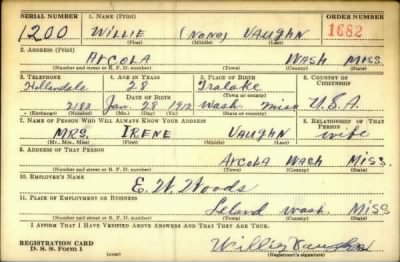 SERIAL NUMBER 1. NAME (Print) ORDER NUMBER
1200 WILLIE (NONE) VAUGHN 1682
(First) (Middle) (Last)
2. ADDRESS (Print)
ARCOLA WASH MISS.
(Number and street or R. F. D. number) (Town) (County) (State)
3. TELEPHONE 4. AGE IN YEARS 5. PLACE OF BIRTH 6. COUNTRY OF CITIZENSHIP
Hollandale 28 Tralake
DATE OF BIRTH (Town or county)
2188 Jan. 28 1912 Wash. Miss U.S.A.
(Exchange) (Number) (Mo.) (Day) (Yr.) (State or country)
7. NAME OF PERSON WHO WILL ALWAYS KNOW YOUR ADDRESS 8. RELATIONSHIP OF THAT PERSON
MRS. IRENE VAUGHN wife
(Mr., Mrs., Miss) (First) (Middle) (Last)
9. ADDRESS OF THAT PERSON
ARCOLA WASH MISS.
(Number and street or R. F. D. number) (Town) (County) (State)
10. EMPLOYER'S NAME
E. W. Woods
11. PLACE OF EMPLOYMENT OR BUSINESS
Leland Wash. Miss
(Number and street or R. F. D. number) (Town) (County) (State)
I AFFIRM THAT I HAVE VERIFIED ABOVE ANSWERS AND THAT THEY ARE TRUE.
REGISTRATION CARD
D. S. S. Form 1 (over) Willie Vaughn
(Registrant's signature)